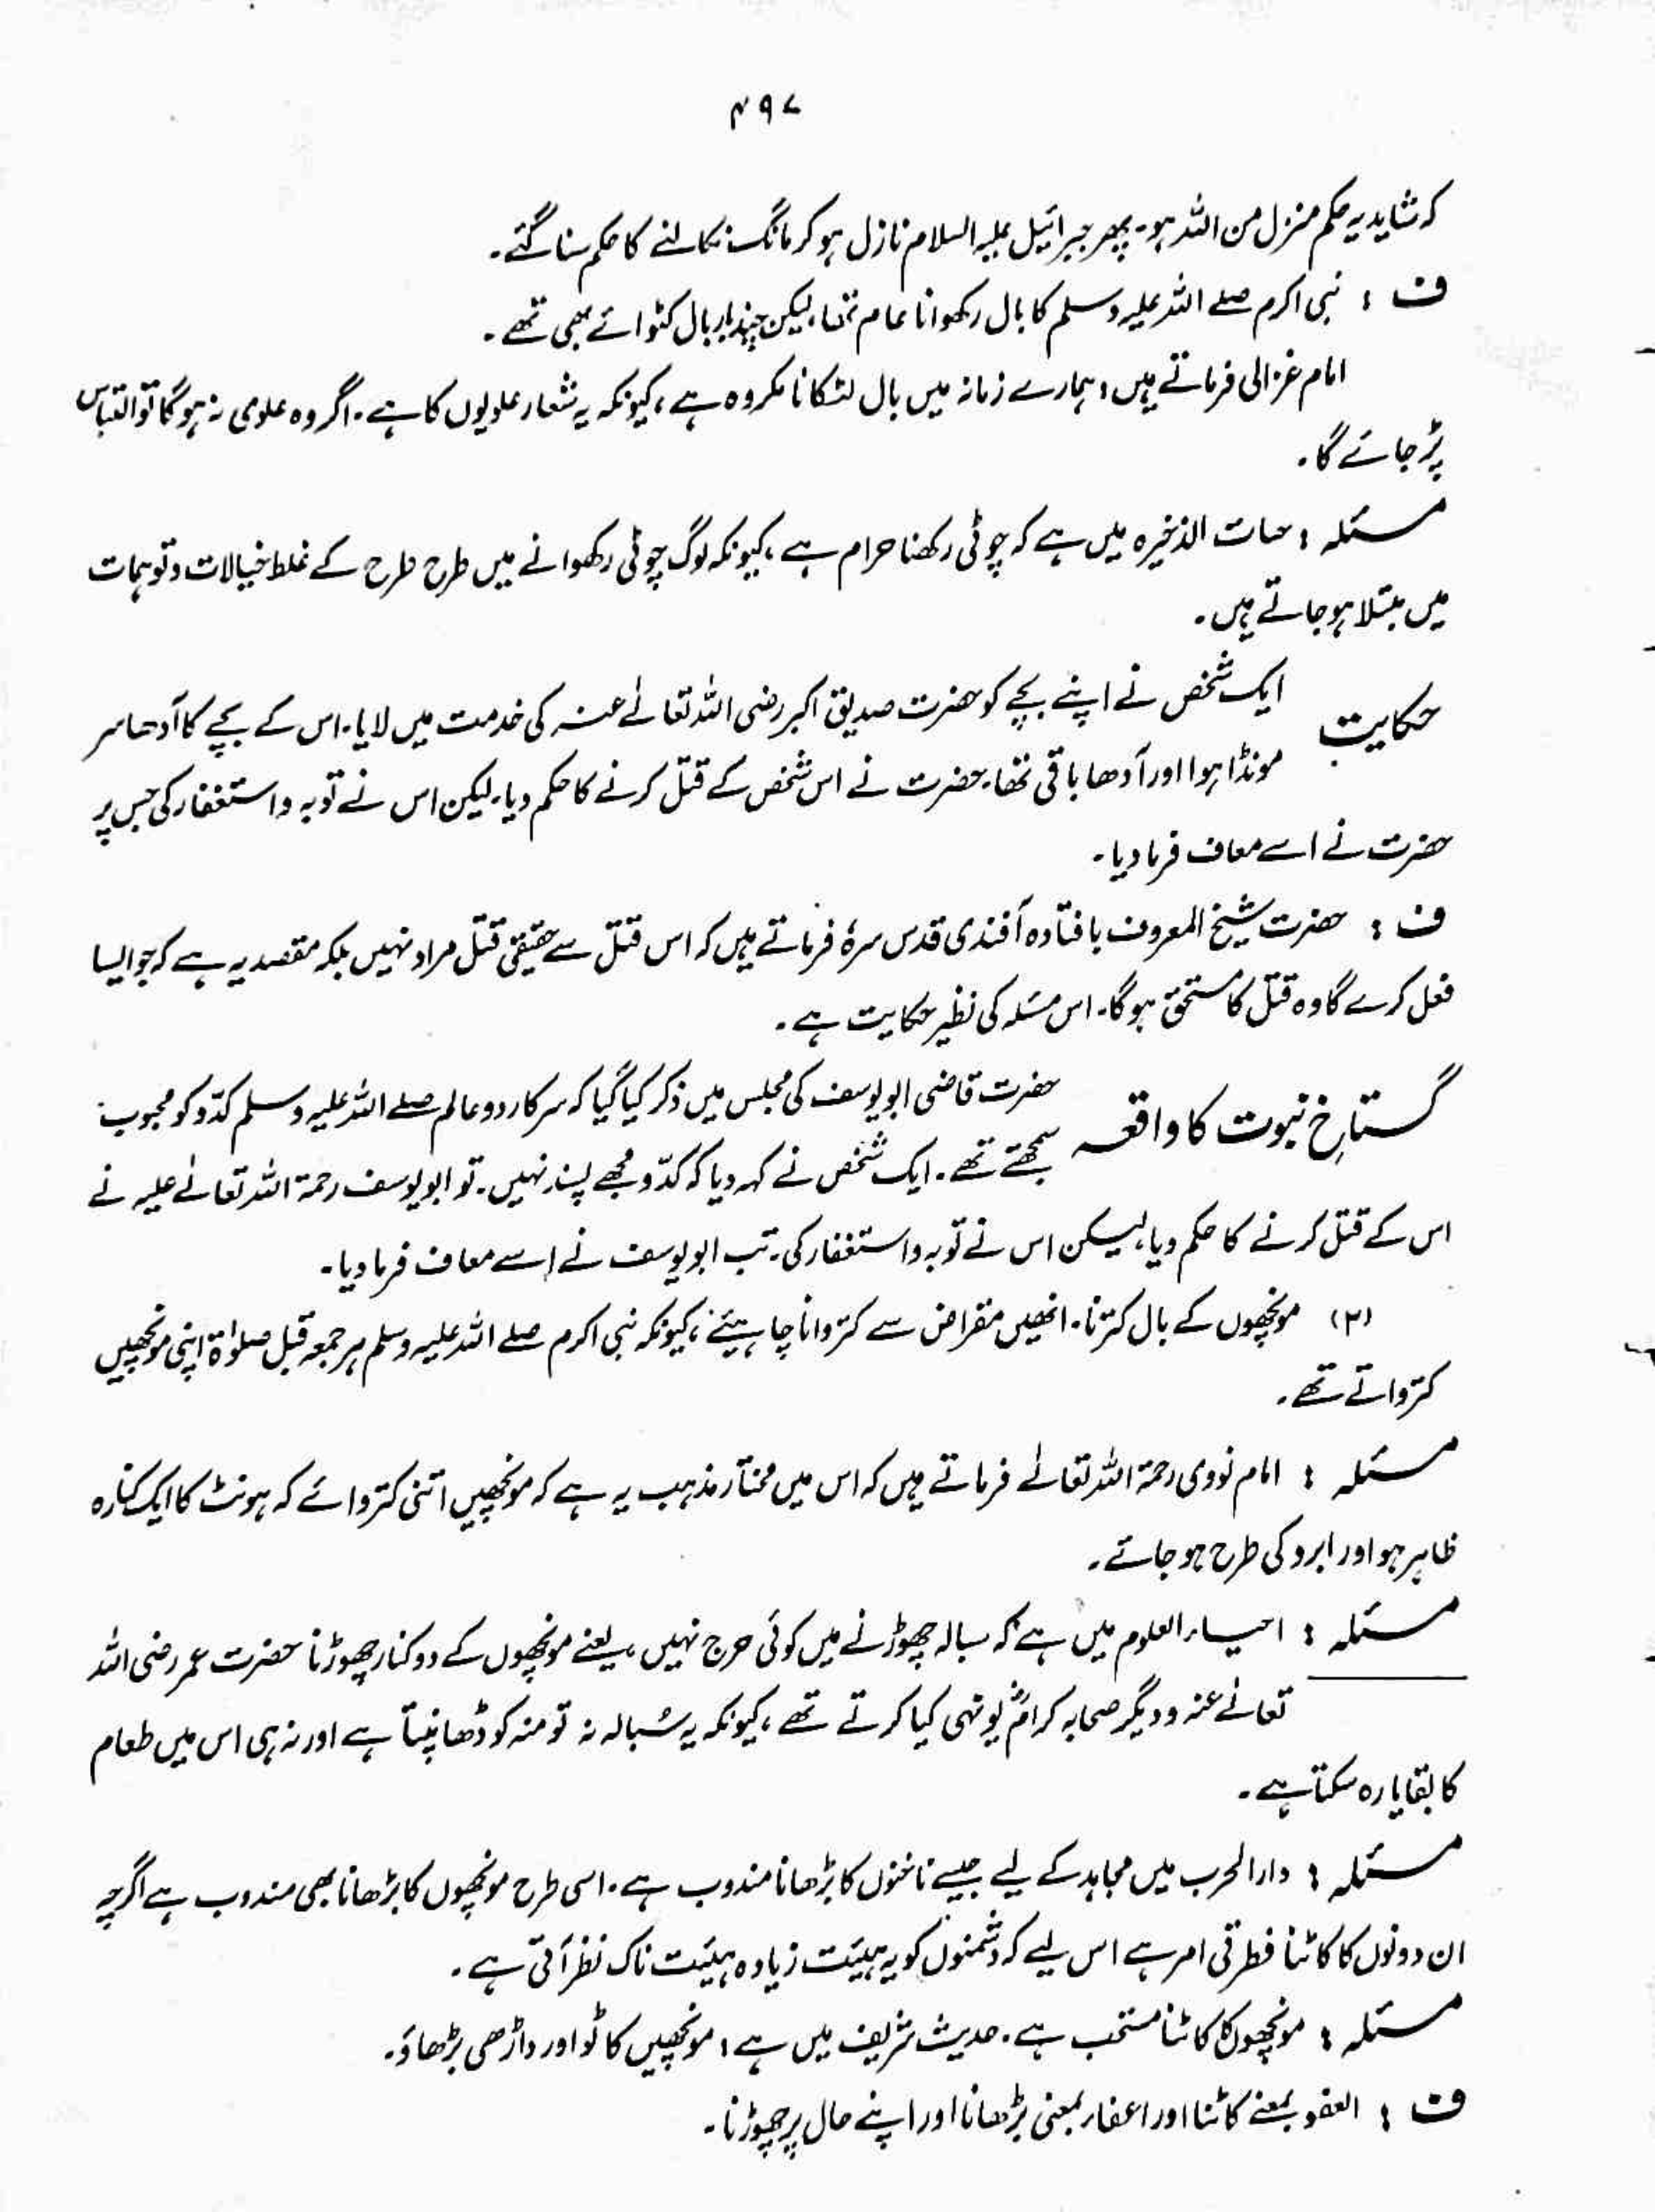 ۴۹۷
کہ شاید یہ حکم منزل من اللہ ہو۔ پھر جبرائیل علیہ السلام نازل ہو کر مانگ نکالنے کا حکم سنا گئے۔
ف : نبی اکرم صلے اللہ علیہ وسلم کا بال رکھوانا عام تھا، لیکن چند بار بال کٹوائے بھی تھے۔
امام غزالی فرماتے ہیں : ہمارے زمانہ میں بال لٹکانا مکروہ ہے ، کیونکہ یہ شعار علویوں کا ہے ۔ اگر وہ علوی نہ ہوگا تو التباس
پڑ جائے گا۔
مسئلہ : الذخیرہ میں ہے کہ چوٹی رکھنا حرام ہے ، کیونکہ لوگ چوٹی رکھوانے میں طرح طرح کے غلط خیالات و توہمات
میں مبتلا ہو جاتے ہیں۔
حکایت ایک شخص نے اپنے بچے کو حضرت صدیق اکبر رضی اللہ تعالے عنہ کی خدمت میں لایا۔ اس کے بچے کا آدھا سر
مونڈا ہوا اور آدھا باقی تھا۔ حضرت نے اس شخص کے قتل کرنے کا حکم دیا۔ لیکن اس نے توبہ و استغفار کی جس پر
حضرت نے اسے معاف فرما دیا۔
ف : حضرت شیخ المعروف بافتادہ آفندی قدس سرہٗ فرماتے ہیں کہ اس قتل سے حقیقی قتل مراد نہیں بلکہ مقصد یہ ہے کہ جو ایسا
فعل کرے گا وہ قتل کا مستحق ہوگا۔ اس مسئلہ کی نظیر حکایت ہے۔
گستاخِ نبوت کا واقعہ حضرت قاضی ابو یوسف کی مجلس میں ذکر کیا گیا کہ سرکار دو عالم صلے اللہ علیہ وسلم کدّو کو محبوب
سمجھتے تھے ۔ ایک شخص نے کہہ دیا کہ کدّو مجھے پسند نہیں۔ تو ابو یوسف رحمۃ اللہ تعالےٰ علیہ نے
اس کے قتل کرنے کا حکم دیا، لیکن اس نے توبہ و استغفار کی۔ تب ابو یوسف نے اسے معاف فرما دیا۔
(۲) مونچھوں کے بال کترنا۔ انھیں مقراض سے کتروانا چاہیئے، کیونکہ نبی اکرم صلے اللہ علیہ وسلم ہر جمعہ قبل صلوٰۃ اپنی مونچھیں
کترواتے تھے ۔
مسئلہ : امام نووی رحمۃ اللہ تعالےٰ فرماتے ہیں کہ اس میں مختار مذہب یہ ہے کہ مونچھیں اتنی کتروائے کہ ہونٹ کا ایک کنارہ
ظاہر ہو اور ابرو کی طرح ہو جائے ۔
مسئلہ : احیاء العلوم میں ہے کہ سبالہ چھوڑنے میں کوئی حرج نہیں ، یعنے مونچھوں کے دو کنار چھوڑنا حضرت عمر رضی اللہ
تعالےٰ عنہ و دیگر صحابہ کرامؓ یونہی کیا کرتے تھے ، کیونکہ یہ سُبالہ نہ تو منہ کو ڈھانپتا ہے اور نہ ہی اس میں طعام
کا بقایا رہ سکتا ہے ۔
مسئلہ : دارالحرب میں مجاہد کے لیے جیسے ناخنوں کا بڑھانا مندوب ہے ۔ اسی طرح مونچھوں کا بڑھانا بھی مندوب ہے اگرچہ
ان دونوں کا کاٹنا فطرتی امر ہے اس لیے کہ دشمنوں کو یہ ہیئت زیادہ ہیئت ناک نظر آتی ہے ۔
مسئلہ : مونچھوں کا کاٹنا مستحب ہے ۔ حدیث شریف میں ہے : مونچھیں کاٹو اور داڑھی بڑھاؤ۔
ف : العفو بمعنے کاٹنا اور اعفاء بمعنی بڑھانا اور اپنے حال پر چھوڑنا ۔